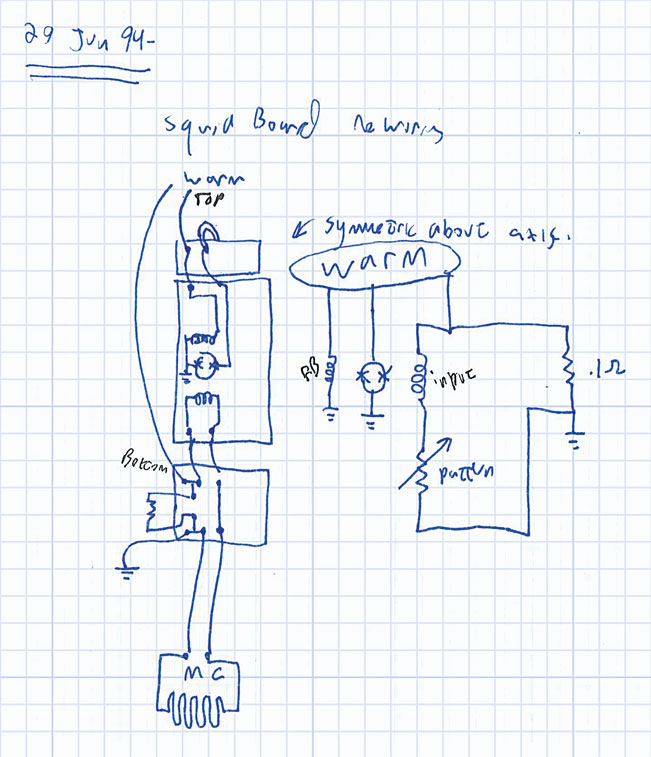 29 Jun 94-
Squid Board rewiring
warm
TOP
↙ Symmetric about axis.
WARM
FB
input
.1Ω
pattern
Bottom
MC